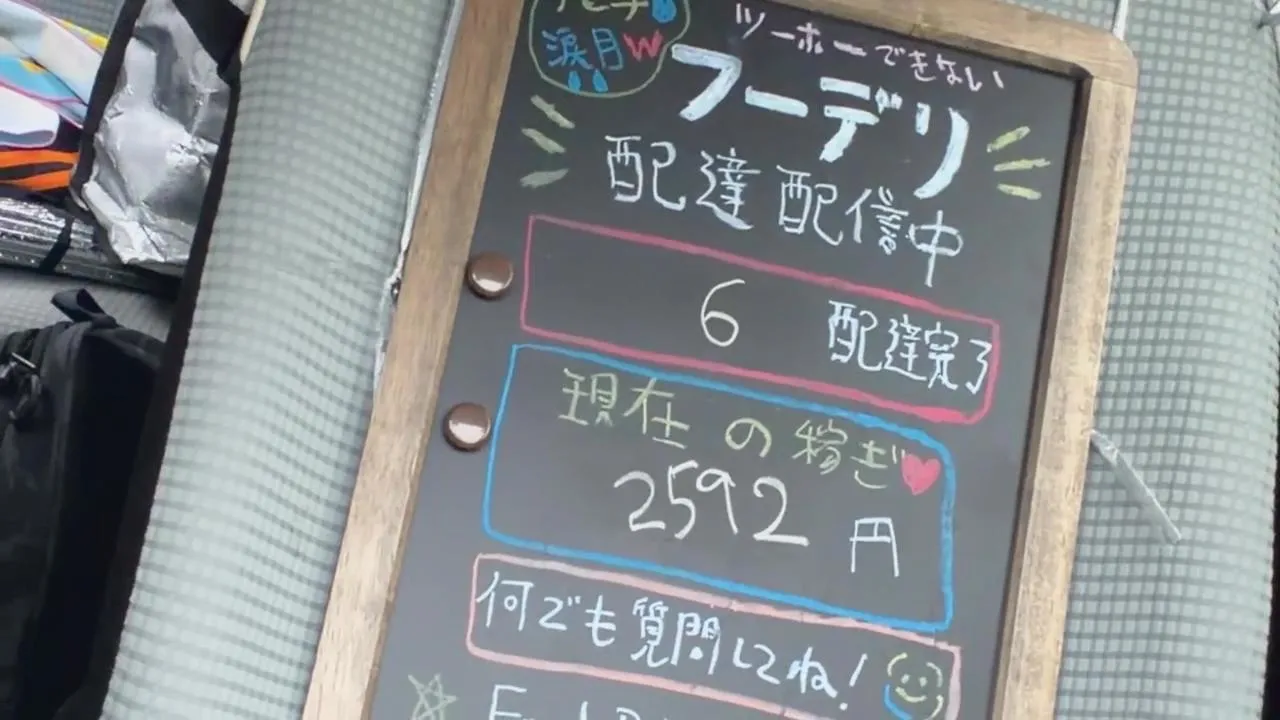 涙月W
ツーホーできない
フーデリ
配達配信中
6 配達完了
現在の稼ぎ
2592円
何でも質問してね!